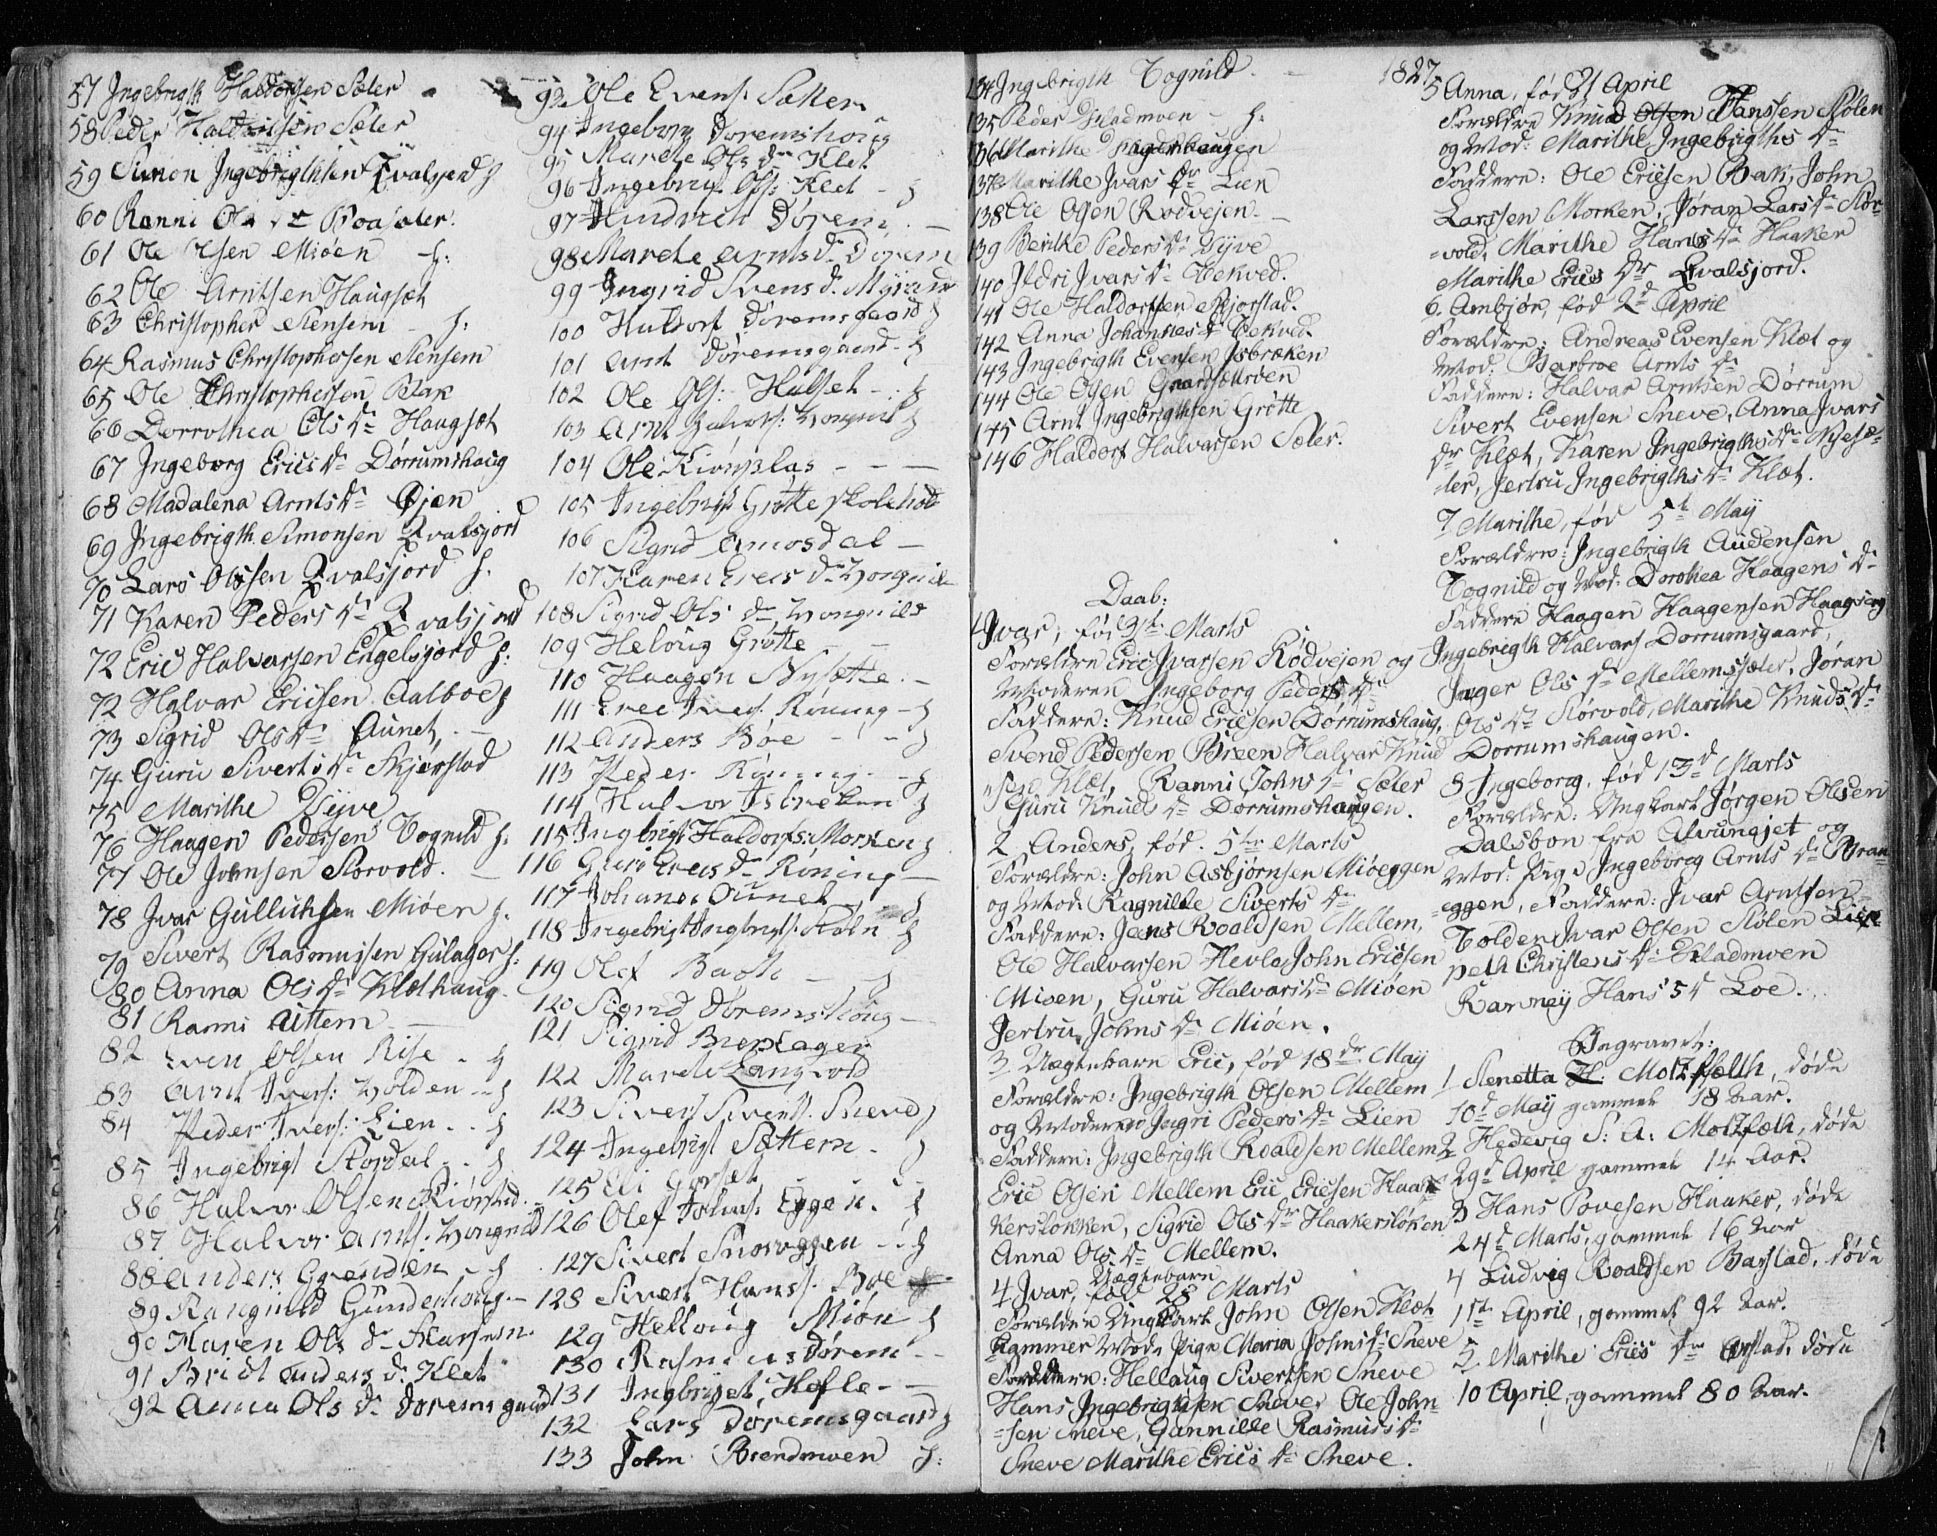 57 Ingebrigth Haldorsen Sæter
58 Peder Haldorsen Sæter
59 Simon Ingebrigthsen Qvalsjord h
60 Ranni Ols dr Boasæter.
61 Ole Olsen Miøen h:
62 Ole Arntsen Haugsæt
63 Christopher Stensem h:
64 Rasmus Christophersen Stensem
65 Ole Christophersen Bak
66 Dorrothea Ols dr Haugsæt
67 Ingeborg Erics dr Dørrumshaug
68 Madalena Arnts dr Øjen
69 Ingebrigth Simonsen Qvalsjord
70 Lars Olssen Qvalsjord h.
71 Karen Peders dr Qvalsjord
72 Eric Halvarsen Engelsjord h:
72 Halvar Ericsen Aalboe h
73 Sigrid Ols dr Aunet
74 Guru Siverts dr Skjørstad
75 Marithe Vijve
76 Haagen Pedersen Vognild h.
77 Ole Johnsen Storvold.
78 Ivar Gullichsen Miøen h.
79 Sivert Rasmussen Gulager h.
80 Anna Ols dr Klethaug
81 Ranni Uttem
82 Even Olsen Rise h
83 Arnt Ivers: Holden h
84 Peder Ivers: Lien h
85 Ingebrigt Stordal h
86 Halvor Olsen Skiørstad
87 Halvor Arnts. Vongnild
88 Anders Grenden h
89 Rangnild Gunderhoug
90 Maren Ols dr
91 Bridt Anders d. Klet
92 Anna Ols dr Doremsgaard
93 Ole Evens: Sæther
94 Ingeborg Doremshoug
95 Marete Ols dr Klet
96 Ingebrigt Ols: Klet h
97 Hindrich Dørem
98 Marete Arnts dr Dorem
99 Ingrid Svens d. Myran
100 Haldorf Doremsgaard h
101 Arnt Doremsgaard h
102 Ole Ols: Halset h
103 Arnt Halvors: Vongnild h
104 Ole Kironplas
105 Ingebrigt Grøtte skolehol
106 Sigrid Amosdal
107 Karen Erecs dr Vongnild
108 Sigrid Ols dr Vongnild
109 Helvig Grøtte
110 Haagen Nysætte
111 Erec Ivers. Røning h
112 Anders Boe h
113 Peder Rønning h
114 Halvor Isbreken h
115 Ingbrigt Haldorfs: Morken h
116 Guri Erecs dr Røning
117 Johanes Ounet h
118 Ingebrigt Ingbrigts: Stølen h
119 Olef Baok h
120 Sigrid Doremshoug
121 Sigrid Brenlager
122 Marete Langvold
123 Sivert Siverts. Sneve h
124 Ingebrigt Sættem h
125 Eli Gorset
126 Olef Johns. Eggen h
127 Sivert Snoeggen h
128 Sivert Hanss. Boe
129 Hellvig Miøn h
130 Rasmus Dørem
131 Ingbrigt Hefle
132 Lars Doremsgaard h
133 John Brendmoen h:
134 Ingebrigth Vognild.
135 Peder Vladmoen h.
136 Marithe Hagershaugen
137 Marithe Ivars dr Lien
138 Ole Olsen Rødvejen
139 Berithe Peders dr Vijve
140 Ildri Ivars dr Vekved.
141 Ole Haldorsen Skjorstad.
142 Anna Johannes dr Vekved.
143 Ingebrigth Evensen Isbræken
144 Ole Olsen Gaardsættrøen
145 Arnt Ingebrigthsen Grøtte
146 Haldorf Halvarsen Sæter.
Daab:
1 Ivar, fød 9de Marts
Forældre Eric Ivarsen Rødvejen og
Moderen Ingeborg Peders dr
Faddere: Knud Ericsen Dørrumshaug,
Svend Pedersen Breen Halvar Knud
sen Klæt, Ranni Johns dr Sæter
Guru Knuds dr Dørrumshaugen.
2 Anders, fød. 5te Marts
Forældre: John Asbjørnsen Miøeggen
og Mod: Ragnilde Siverts dr
Faddere: Jens Roaldsen Mellem,
Ole Halvarsen Hevle, John Ericsen
Miøen, Guru Halvars dr Miøen
Jertru Johns dr Miøen.
3. Uægtebarn Eric, fød 18de May
Forældre: Ingebrigth Olsen Mellem
og Moderen Ingri Peders dr Lien
Faddere: Ingebrigth Roaldsen Mellem
Eric Olsen Mellem Eric Ericsen Haak
kersløkken, Sigrid Ols dr Haakersløken
Anna Ols dr Mellem.
Uægtebarn
4 Ivar, fød 28 Marts
Forældre Ungkarl John Olsen Klæt
hammer Mod: Pige Maria Johns dr Sneve
Faddere: Hellaug Sivertsen Sneve
Hans Ingebrigthsen Sneve, Ole John-
=sen Sneve, Gunnilde Rasmus dr
Sneve Marithe Erics dr Sneve.
1827
5 Anna, fød 21 April
Forældre Knud Olsen Hanssen Stølen
og Mod: Marithe Ingebrigths dr
Faddere: Ole Ericsen Bak, John
Larssen Morken, Jøran Lars dr Stor-
=vold, Marithe Hans dr Haaker
Marithe Erics dr Qvalsjord.
6. Ambjør, fød 2d April
Forældre: Andreas Evensen Klæt og
Mod: Barbroe Arnts dr
Faddere: Halvar Arntsen Dørrum
Sivert Evensen Sneve, Anna Ivars
dr Klæt, Karen Ingebrigths dr Nysæ-
ter, Jertru Ingebrigths dr Klæt.
7 Marithe, fød 5te May
Forældre: Ingebrigth Audensen
Vognild og Mod: Dorothea Haagens dr
Faddere Haagen Haagensen Haagsæg
Ingebrigth Halvars Dorrumsgaard,
Inger Ols dr Mellemsæter, Jøran
Ols dr Storvold, Marithe Knuds dr
Dorrumshaugen.
8 Ingeborg, fød 13d Marts
Forældre: Ungkarl Jørgen Olsen
Dalsbon fra Alvungjet og
Mod: Pige Ingeborg Arnts dr Bran
=eggen, Faddere: Ivar Arntsen
Volden Ivar Olsen Stølen Lis-
peth Christens dr Vladmoen
Karney Hans dr Loe.
Begravet:
1 Stenetta H. Moltzfældt, døde
10d May gammel 18 Aar.
2 Hedevig S: A: Moltzfæth, døde
29d April gammel 14 Aar.
3 Hans Povesen Haaker, døde
24d Marts, gammel 16 Aar
4 Ludvig Roaldsen Barstad, døde
1ste April, gammel 92 Aar.
5. Marithe Erics dr Opstad, døde
10 April, gammel 80 Aar.